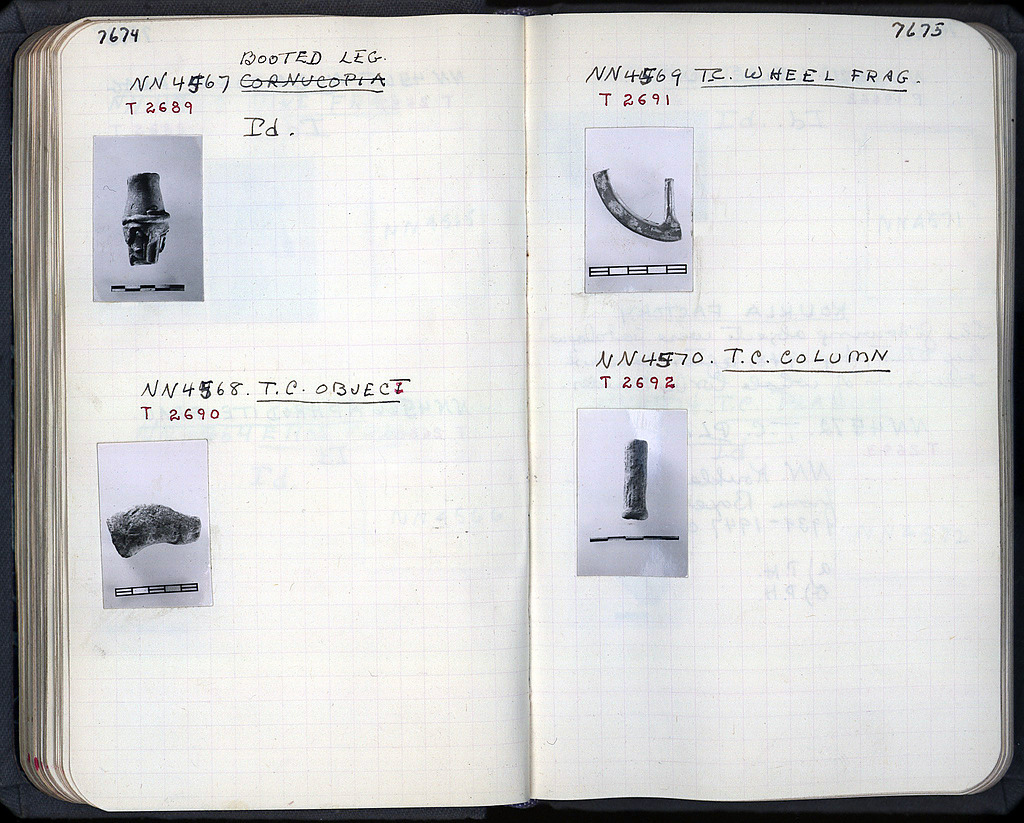 7674
BOOTED LEG.
NN 4567 CORNUCOPIA
T 2689
Id.
NN4568. T.C. OBJECT
T 2690
7675
NN4569 TC. WHEEL FRAG.
T 2691
NN4570. T.C. COLUMN
T 2692